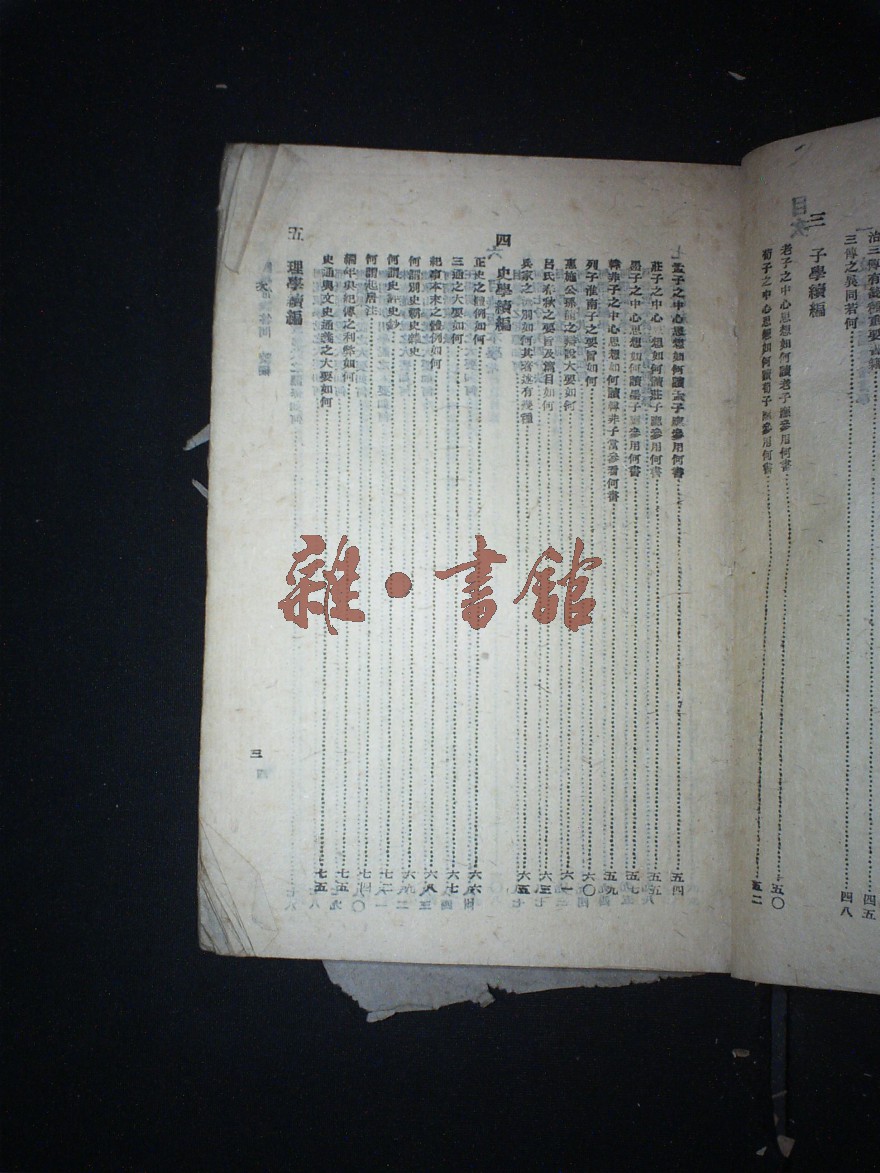 目次
治三傳有
三傳之異同若何 四八
四五
三 子學續編
老子之中心思想如何讀老子應參用何書 五〇
荀子之中心思想如何讀荀子應參用何書 五二
孟子之中心思想如何讀孟子應參用何書 五四
莊子之中心思想如何讀莊子應參用何書 五五
墨子之中心思想如何讀墨子應參用何書 五七
韓非子之中心思想如何讀韓非子當參看何書 五九
列子淮南子之要旨如何 六〇
惠施公孫龍之辯說大要如何 六一
呂氏春秋之要旨及篇目如何 六三
兵家之 別如何其著述有幾種 六五
四 史學續編
正史之體例如何 六六
三通之大要如何 六七
紀事本末之體例如何 六八
何謂別史霸史雜史 六九
何謂史評史鈔 七二
何謂起居注 七四
編年與紀傳之利弊如何 七五
史通與文史通義之大要如何 七五
五 理學續編
三
雜·書館